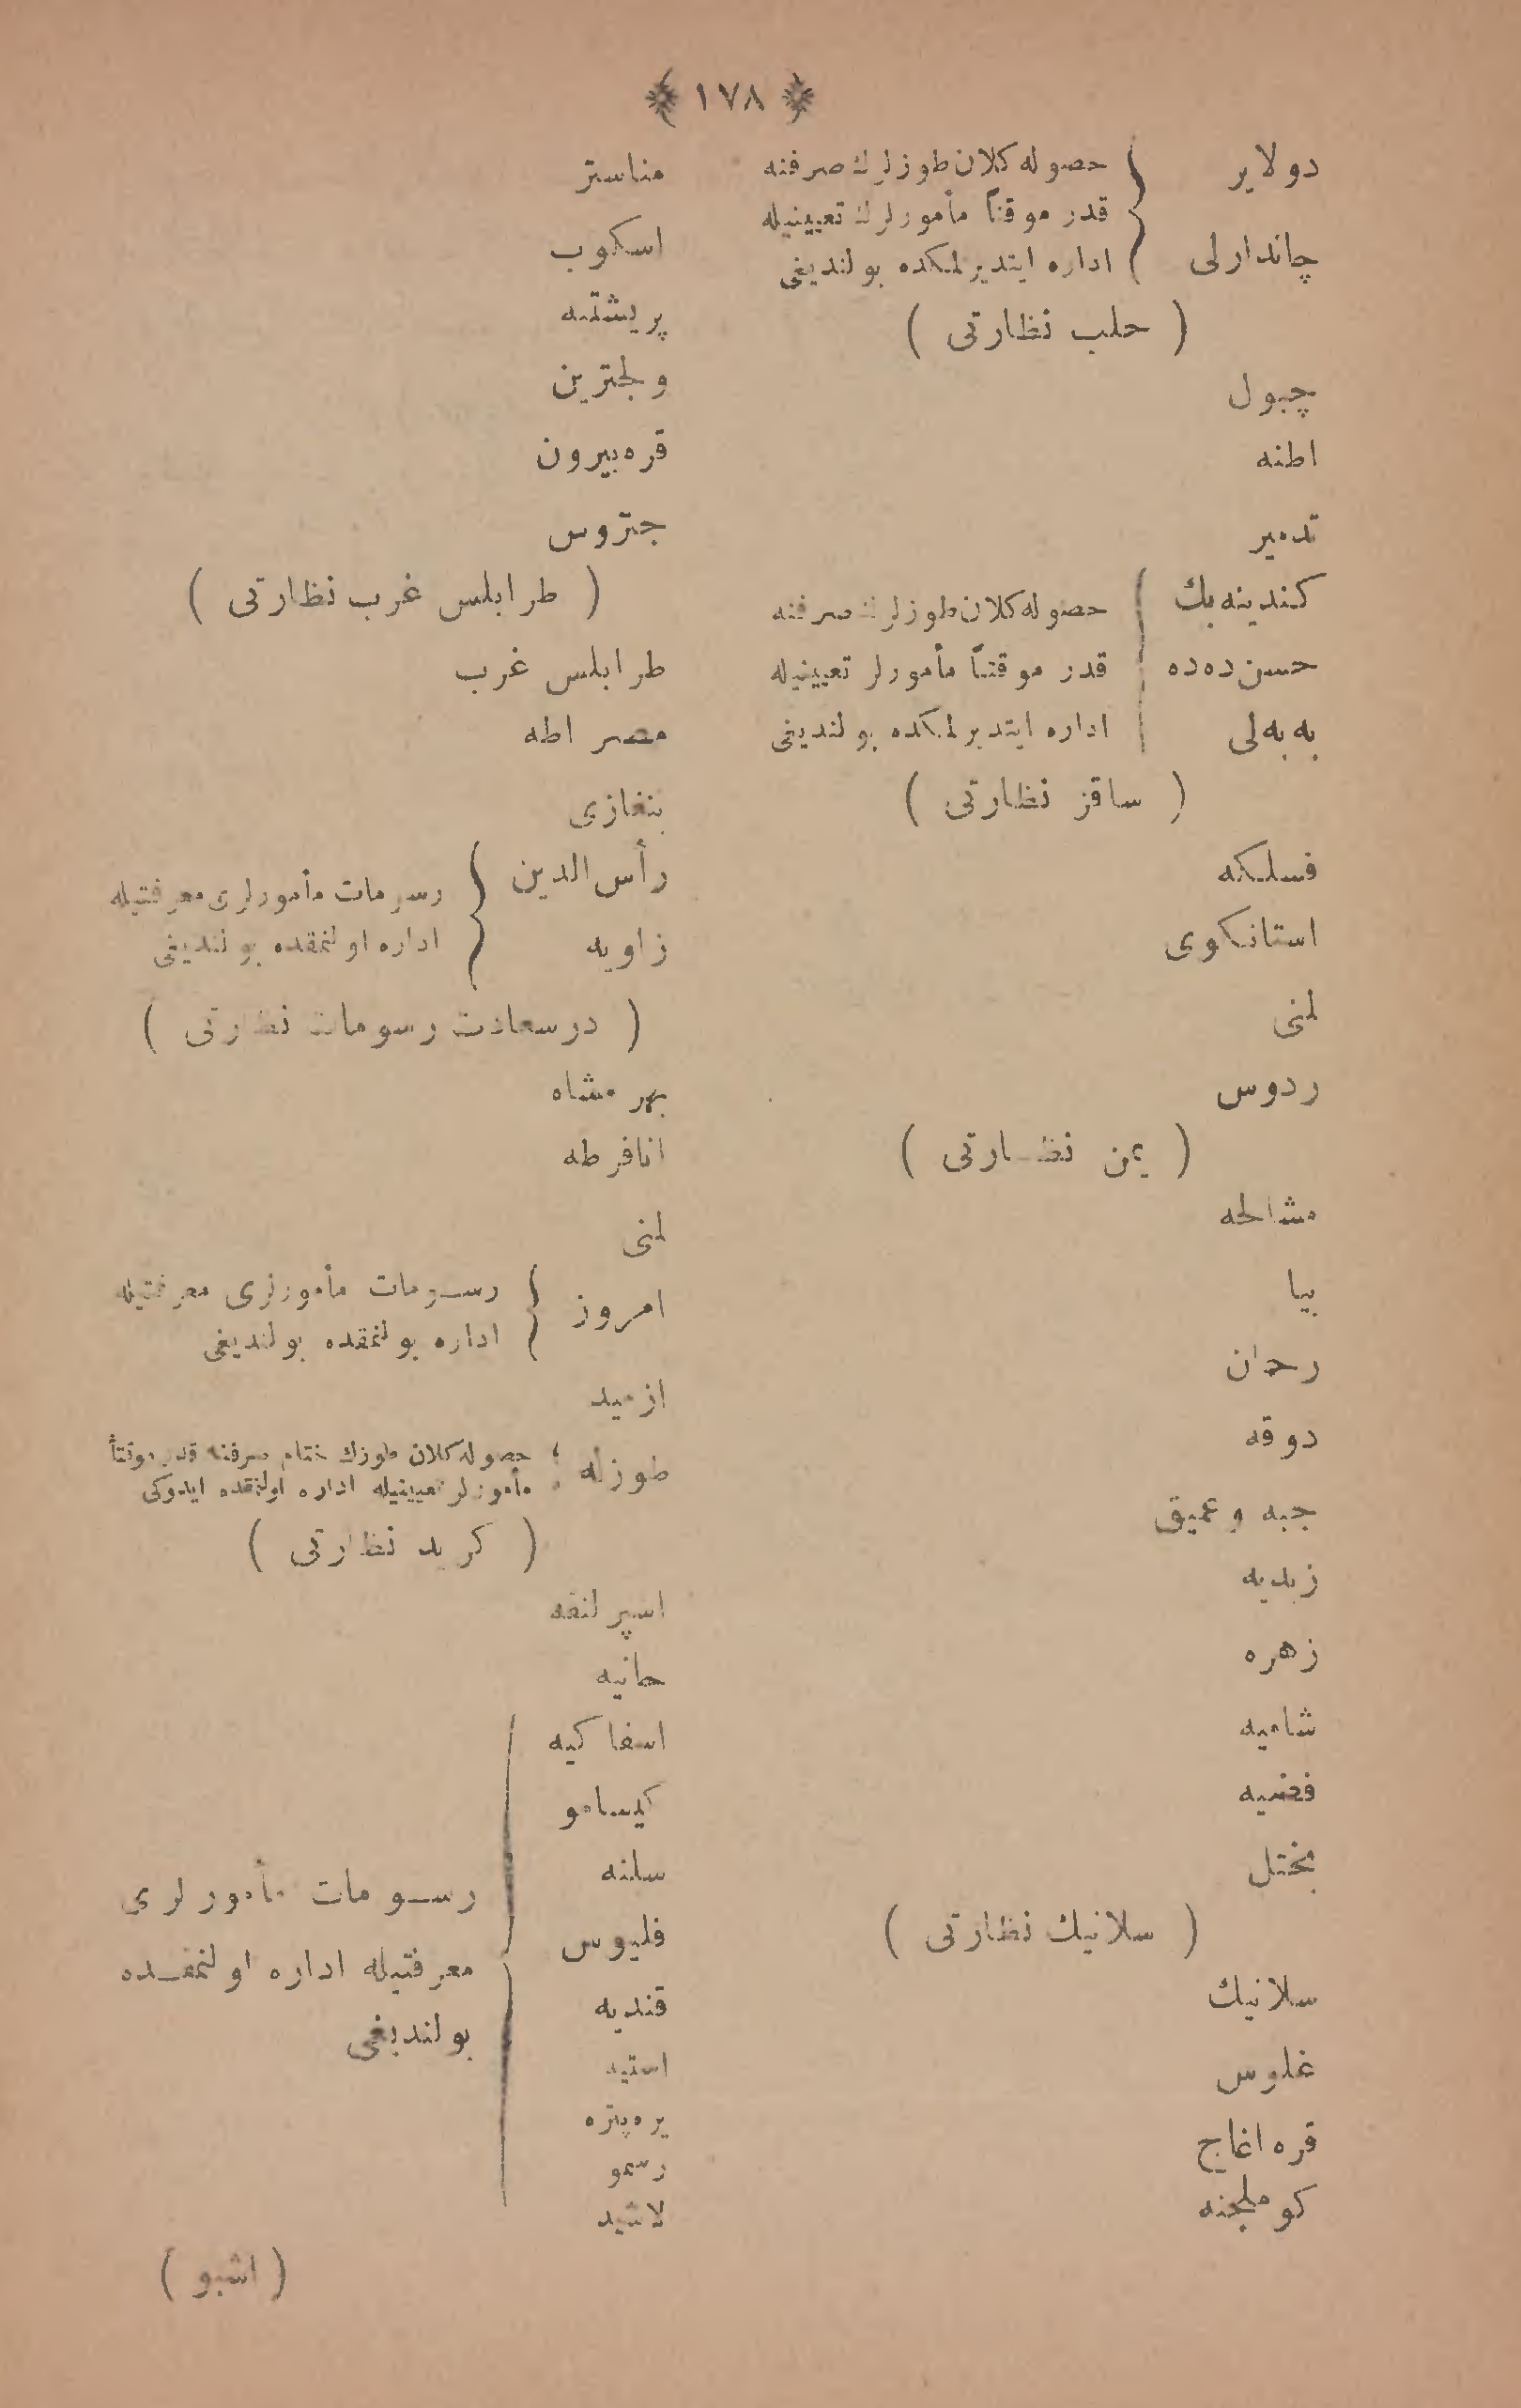 ١٧٨
دولاير
چاندارلی
حصوله كلان طوزلرك صرفنه
قدر موقتاً مأمورلرك تعيينيله
اداره ايتديرلمكده بولنديغی
( حلب نظارتی )
جبول
اطنه
تدمير
كندينه بك
حسن ده ده
به به لی
حصوله كلان طوزلرك صرفنه
قدر موقتاً مأمورلر تعيينيله
اداره ايتديرلمكده بولنديغی
( ساقز نظارتی )
فسلكه
استانكوی
لمنی
ردوس
( يمن نظارتی )
مشالحه
بيا
رحان
دوقه
جبه و عميق
زيديه
زهره
شاميه
فضيه
مختل
( سلانيك نظارتی )
سلانيك
غلوس
قره اغاج
كوملجنه
مناستر
اسكوب
پريشتنه
ولچترين
قره بيرون
جتروس
( طرابلس غرب نظارتی )
طرابلس غرب
مصر اطه
بنغازی
رأس الدين
زاويه
رسومات مأمورلری معرفتيله
اداره اولنمقده بولنديغی
( درسعادت رسومات نظارتی )
بهرمشاه
انافرطه
لمنی
امروز
رسومات مأمورلری معرفتيله
اداره بولنمقده بولنديغی
ازميد
طوزله
حصوله كلان طوزك ختام صرفنه قدر موقتاً
مأمورلر تعيينيله اداره اولنمقده ايدوكی
( كريد نظارتی )
اسپرلنغه
حانيه
اسفاكيه
كيسامو
سلنه
قليوس
قنديه
استيه
يره پتره
رسمو
لاشيد
رسومات مأمورلری
معرفتيله اداره اولنمقده
بولنديغی
( اشبو )